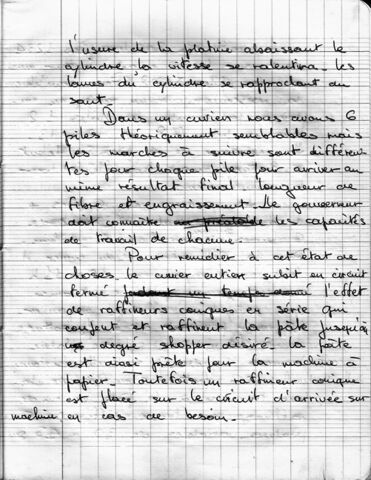 l'usure de la platine abaissant le
cylindre la vitesse se ralentira. les
lames du cylindre se rapprochant au
saut.
Dans un cuvier nous avons 6
piles théoriquement semblables mais
les marches à suivre sont différen
tes pour chaque pile pour arriver au
même résultat final. longueur de
fibre et engraissement. Le gouverneur
doit connaître les capacités
de travail de chacune.
Pour remédier à cet état de
choses. le cuvier entier subit en circuit
fermé pendant un temps donné l'effet
de raffineurs coniques en série qui
coupent et raffinent la pâte jusqu'au
degré shopper désiré. la pâte
est ainsi prête pour la machine à
papier. Toutefois un raffineur conique
est placé sur le circuit d'arrivée sur
machine en cas de besoin.